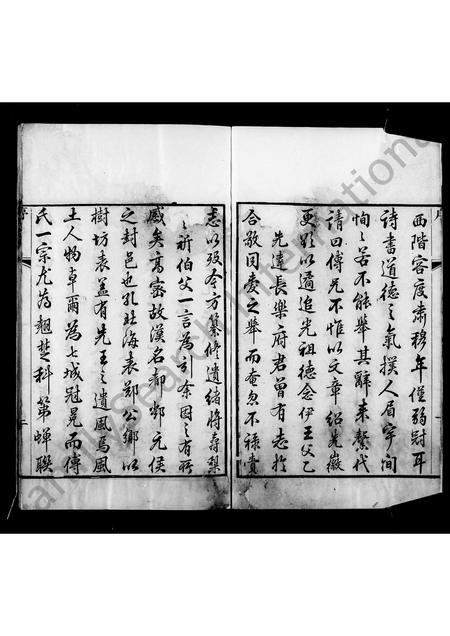 西階容度肅穆年僅弱冠耳
詩書道德之氣撲人眉宇間
恂恂若不能舉其辭來繫代
請曰傅兄不惟以文章紹先徽
更欲以遹追先祖德念伊王父乙
先達長樂府君曾有志於
合敬同愛之舉而奄忽不祿賫
志以歿今方纂修遺緒將壽梨
祈伯父一言為引余因之有所
感矣高密故漢名郡鄧元侯
之封邑也孔北海表鄭公鄉以
樹坊表蓋有先王之遺風焉風
土人物卓爾為七城冠冕而傅
氏一宗尤為翹楚科第蟬聯
序
FamilySearch International